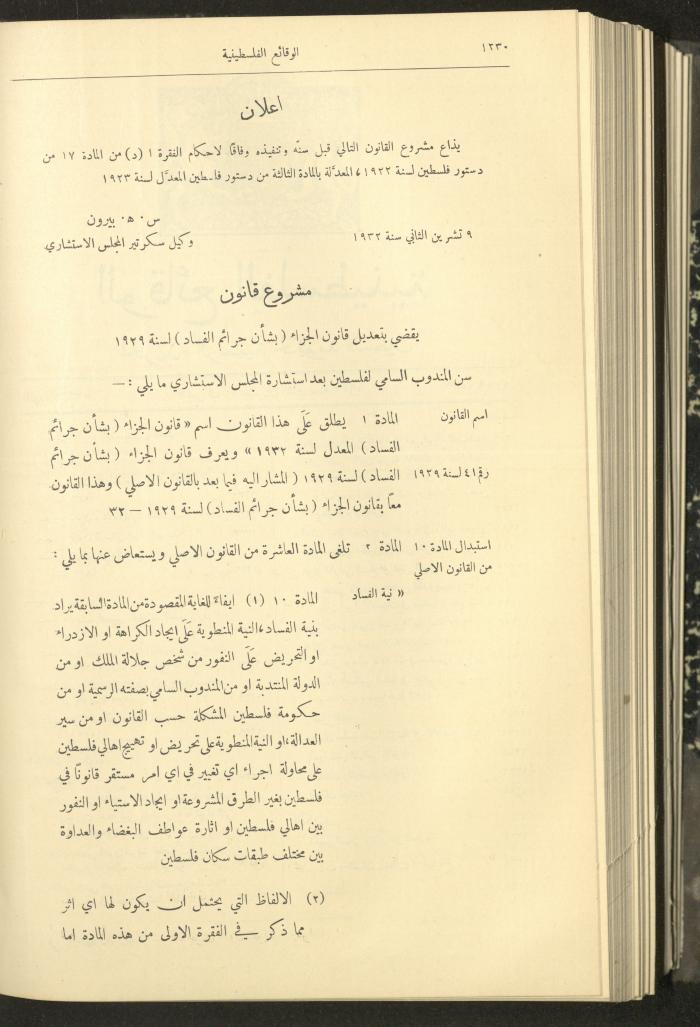 ١٢٣٠
الوقائع الفلسطينية
اعلان
يذاع مشروع القانون التالي قبل سنّه وتنفيذه وفاقًا لاحكام الفقرة ١ (د) من المادة ١٧ من
دستور فلسطين لسنة ١٩٢٢، المعدلة بالمادة الثالثة من دستور فلسطين المعدّل لسنة ١٩٢٣
س٠ ه٠ بيرون
٩ تشرين الثاني سنة ١٩٣٢
وكيل سكرتير المجلس الاستشاري
مشروع قانون
يقضي بتعديل قانون الجزاء (بشأن جرائم الفساد) لسنة ١٩٢٩
سن المندوب السامي لفلسطين بعد استشارة المجلس الاستشاري ما يلي : —
اسم القانون
المادة ١ يطلق عَلَى هذا القانون اسم « قانون الجزاء (بشأن جرائم
الفساد) المعدل لسنة ١٩٣٢ » ويعرف قانون الجزاء (بشأن جرائم
رقم ٤١ لسنة ١٩٢٩
الفساد) لسنة ١٩٢٩ (المشار اليه فيما بعد بالقانون الاصلي) وهذا القانون
معًا بقانون الجزاء (بشأن جرائم الفساد) لسنة ١٩٢٩ — ٣٢
استبدال المادة ١٠
من القانون الاصلي
المادة ٢ تلغى المادة العاشرة من القانون الاصلي ويستعاض عنها بما يلي :
« نية الفساد
المادة ١٠ (١) ايفاءً للغاية المقصودة من المادة السابقة يراد
بنية الفساد، النية المنطوية عَلَى ايجاد الكراهة او الازدراء
او التحريض عَلَى النفور من شخص جلالة الملك او من
الدولة المنتدبة او من المندوب السامي بصفته الرسمية او من
حكومة فلسطين المشكلة حسب القانون او من سير
العدالة، او النية المنطوية على تحريض او تهييج اهالي فلسطين
على محاولة اجراء اي تغيير في اي امر مستقر قانونًا في
فلسطين بغير الطرق المشروعة او ايجاد الاستياء او النفور
بين اهالي فلسطين او اثارة عواطف البغضاء والعداوة
بين مختلف طبقات سكان فلسطين
(٢) الالفاظ التي يحتمل ان يكون لها اي اثر
مما ذكر في الفقرة الاولى من هذه المادة اما